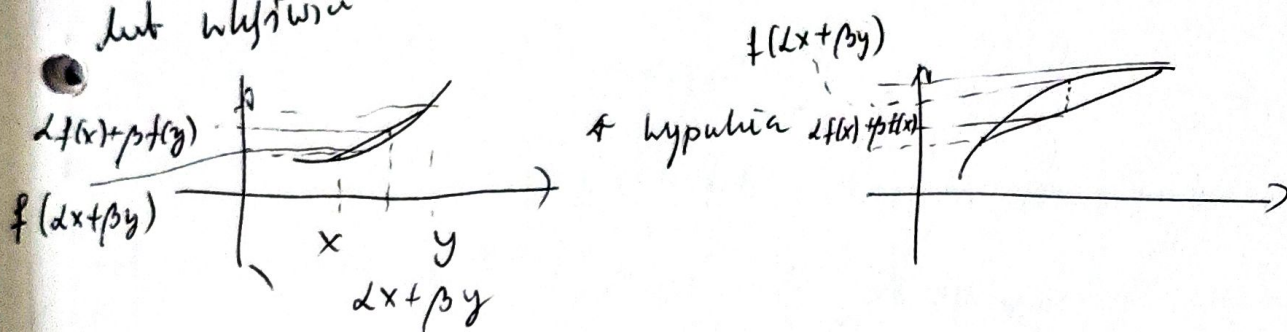 lub wklęsła
αf(x)+βf(y)
f(αx+βy)
x y
αx+βy
f(αx+βy)
wypukła αf(x)+βf(x)